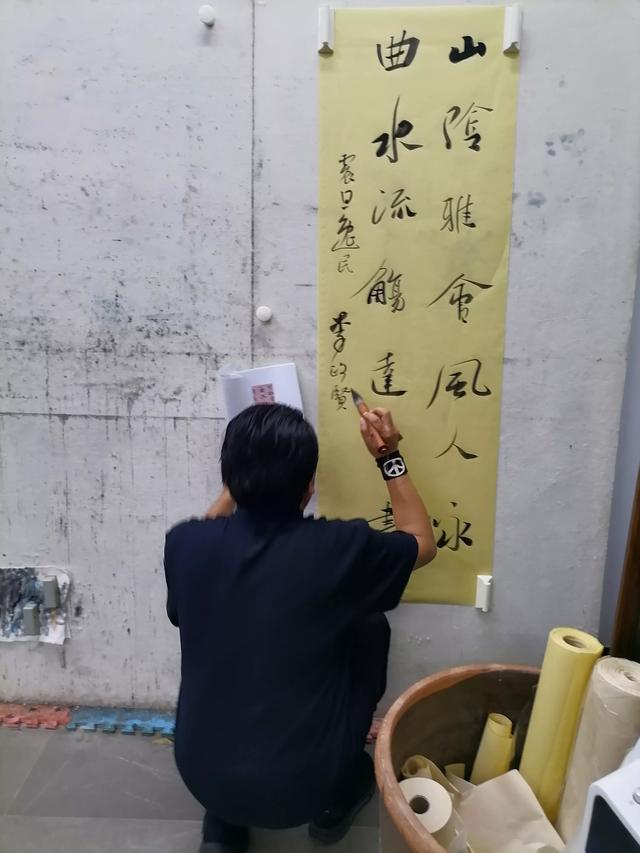 山陰雅會風人詠
曲水流觴達書
震旦逸民 李明賢